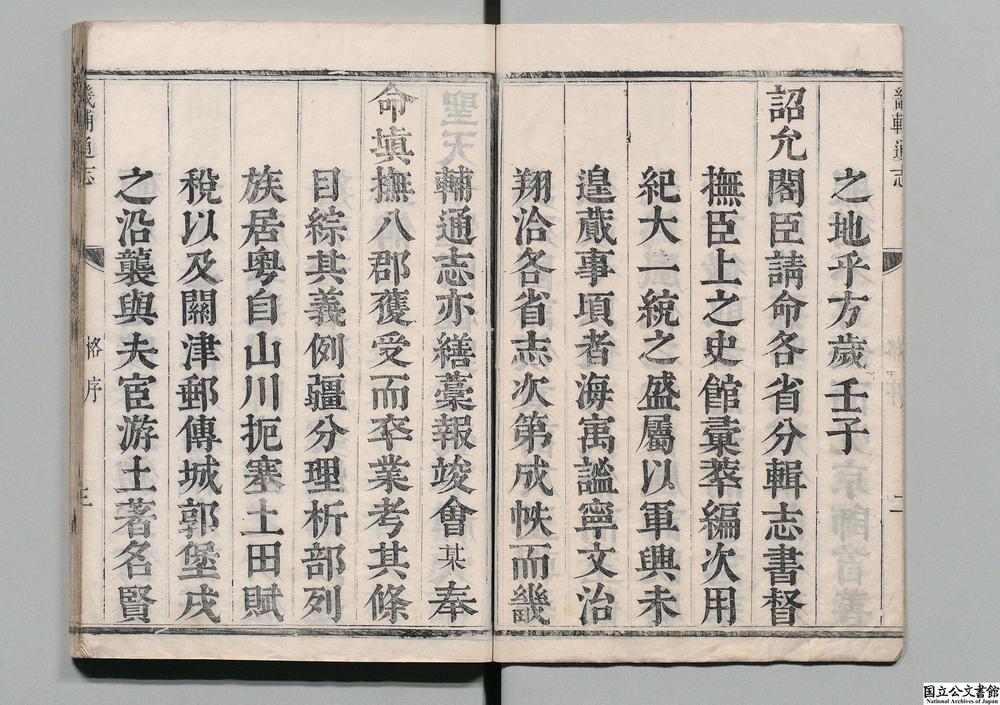 畿輔通志
之地乎方歲壬子
詔允閣臣請命各省分輯志書督
撫臣上之史館彙萃編次用
紀大一統之盛屬以軍興未
遑蕆事頃者海寓謐寧文治
翔洽各省志次第成帙而畿
輔通志亦繕藁報竣會某奉
命填撫八郡獲受而卒業考其條
目綜其義例疆分理析部列
族居粤自山川扼塞土田賦
稅以及關津郵傳城郭堡戍
之沿襲與夫宦游土著名賢
畿輔通志
格序
三
二
国立公文書館
National Archives of Japan